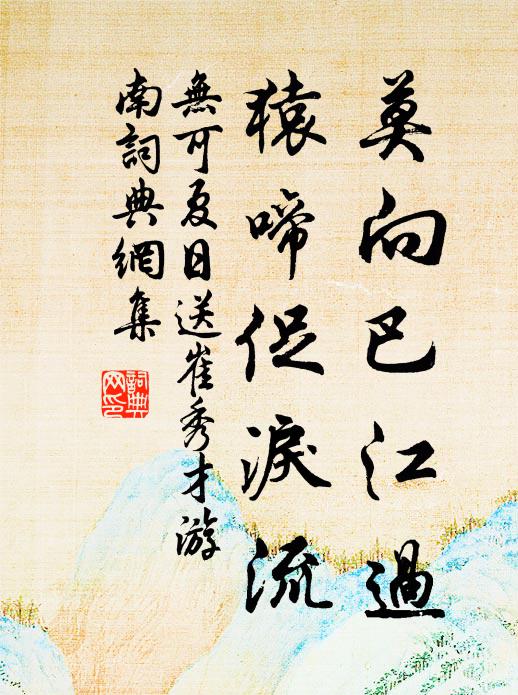 莫向巴江過
猿啼促淚流
無可夏日送崔秀才游
南詞典網集
詞典網印